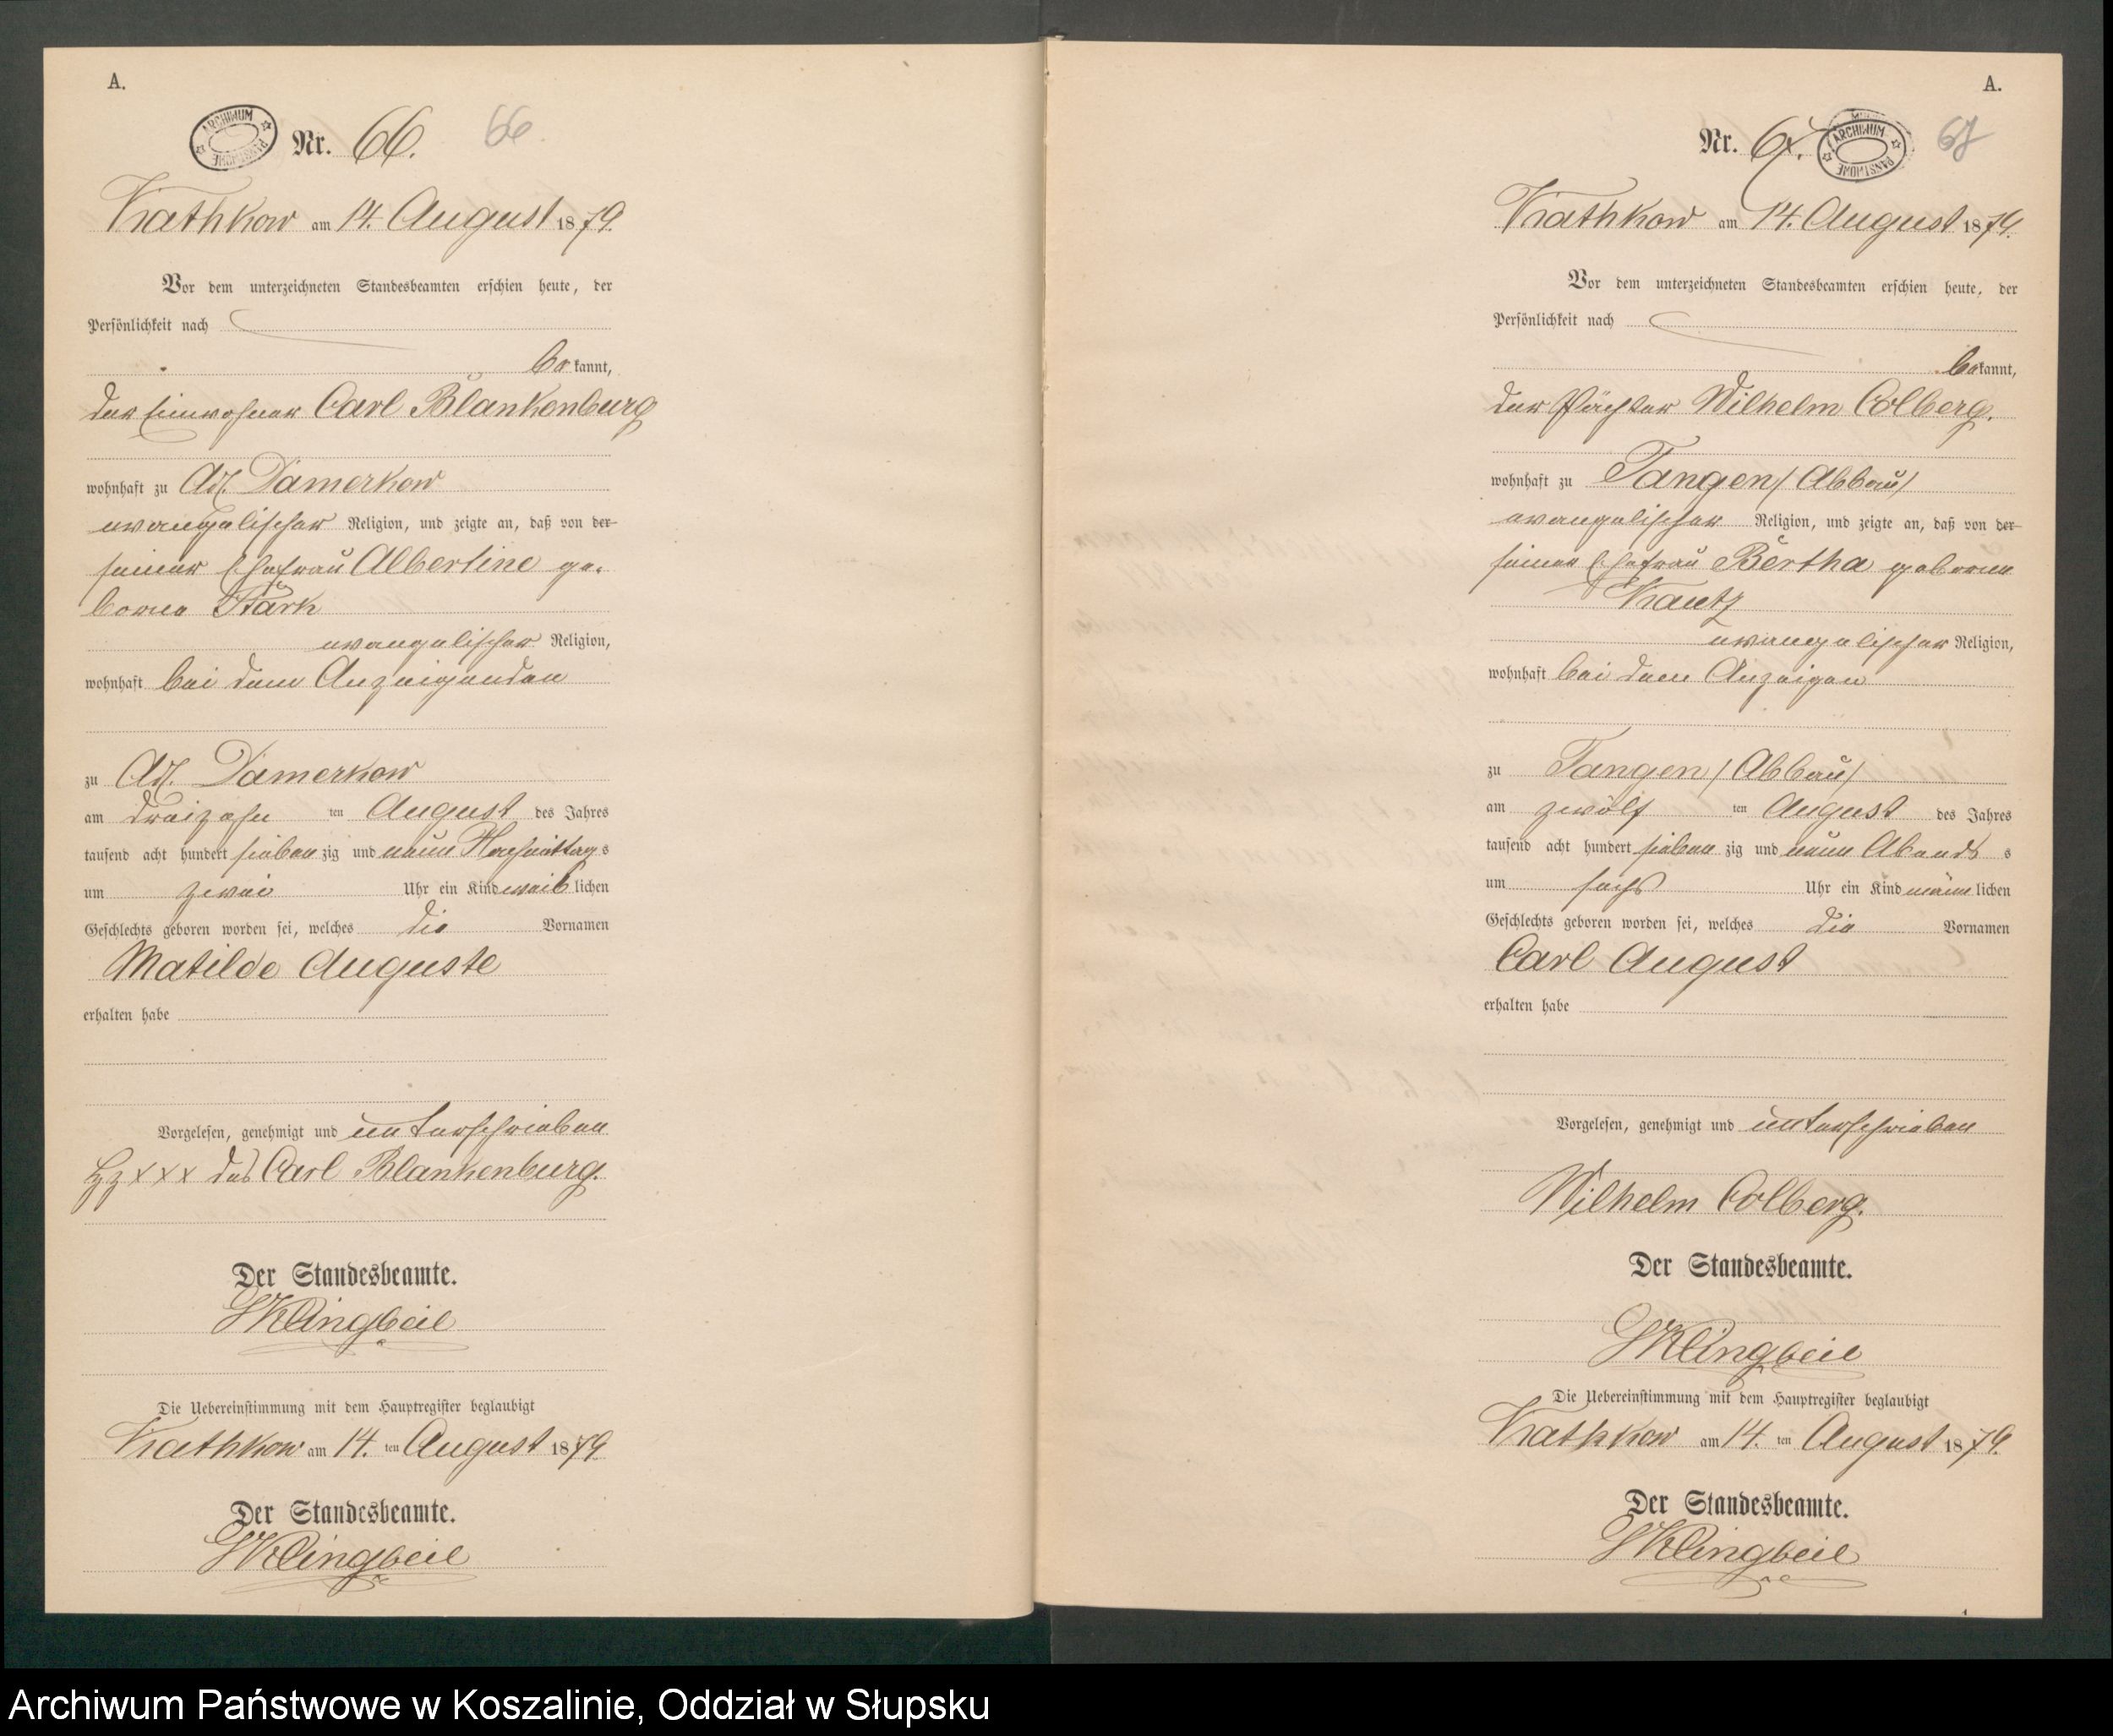 A.
ARCHIWUM PAŃSTWOWE
Nr. 66. 66
Krathkow am 14. August 1879.
Vor dem unterzeichneten Standesbeamten erschien heute, der
Persönlichkeit nach
bekannt,
der Einwohner Carl Blankenburg
wohnhaft zu Adl. Damerkow
evangelischer Religion, und zeigte an, daß von der
seiner Ehefrau Albertine ge-
borne Stark
evangelischer Religion,
wohnhaft bei dem Anzeigenden
zu Adl. Damerkow
am dreizehn ten August des Jahres
tausend acht hundert sieben zig und neun Nachmittag s
um zwei Uhr ein Kind weib lichen
Geschlechts geboren worden sei, welches die Vornamen
Matilde Auguste
erhalten habe
Vorgelesen, genehmigt und unterschrieben
Hz x x x des Carl Blankenburg.
Der Standesbeamte.
Klingbeil
Die Uebereinstimmung mit dem Hauptregister beglaubigt
Krathkow am 14. ten August 1879.
Der Standesbeamte.
Klingbeil
A.
Nr. 67. ARCHIWUM PAŃSTWOWE 67
Krathkow am 14. August 1879.
Vor dem unterzeichneten Standesbeamten erschien heute, der
Persönlichkeit nach
bekannt,
der Pächter Wilhelm Colberg.
wohnhaft zu Tangen / Abbau /
evangelischer Religion, und zeigte an, daß von der
seiner Ehefrau Bertha geborne
Krautz
evangelischer Religion,
wohnhaft bei dem Anzeigen
zu Tangen / Abbau /
am zwölf ten August des Jahres
tausend acht hundert sieben zig und neun Abends s
um sechs Uhr ein Kind männ lichen
Geschlechts geboren worden sei, welches die Vornamen
Carl August
erhalten habe
Vorgelesen, genehmigt und unterschrieben
Wilhelm Colberg.
Der Standesbeamte.
Klingbeil
Die Uebereinstimmung mit dem Hauptregister beglaubigt
Krathkow am 14. ten August 1879.
Der Standesbeamte.
Klingbeil
Archiwum Państwowe w Koszalinie, Oddział w Słupsku